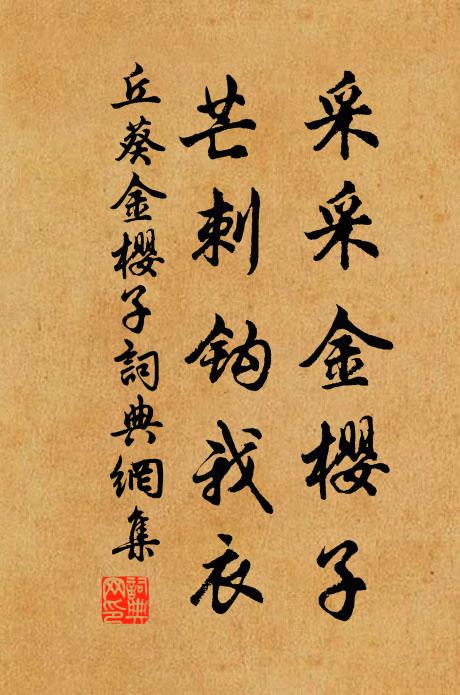 采采金櫻子
芒刺鈎我衣
丘葵金櫻子詞典網集
詞典
网印